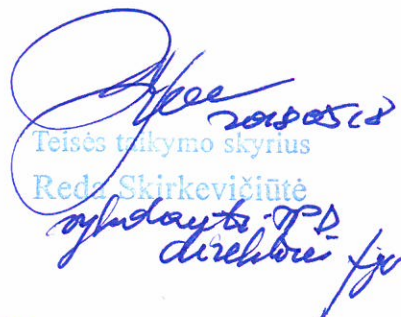 20180518
Teisės taikymo skyrius
Reda Skirkevičiūtė
vykdanti TPD
direktorės